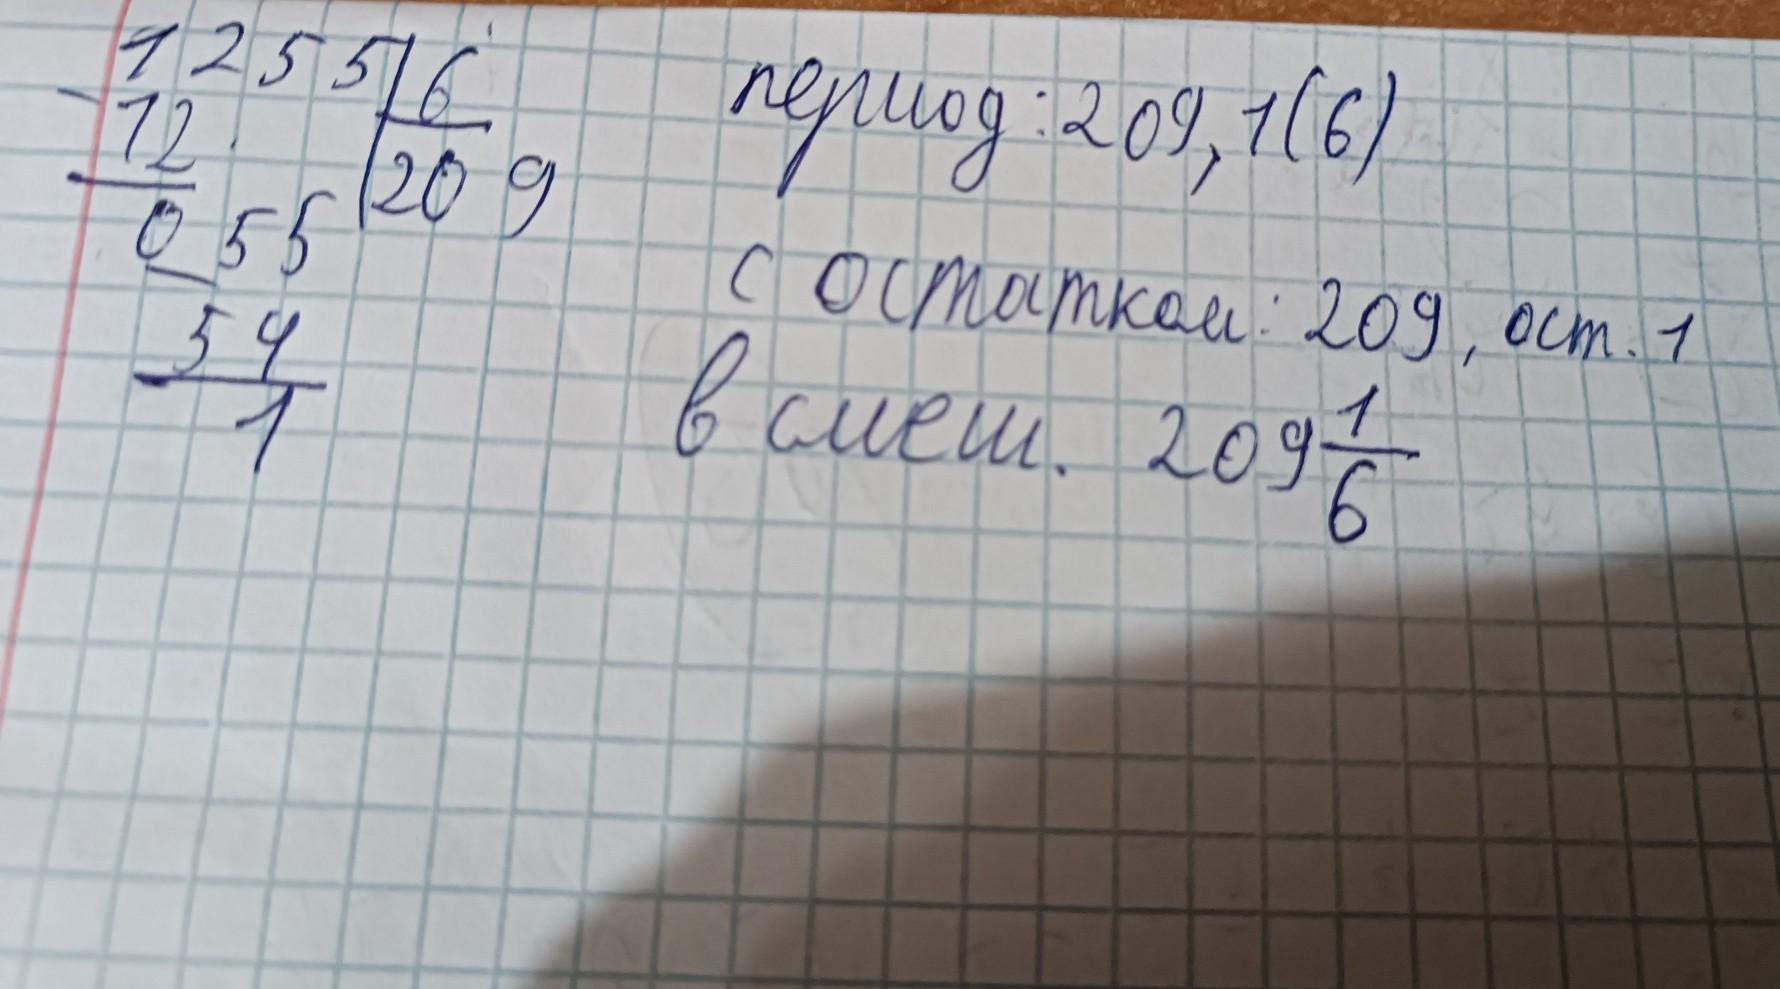 1255 6
- 12 209
0 55
- 54
1
период: 209,1(6)
с остатком: 209, ост. 1
в смеш. 209 1/6